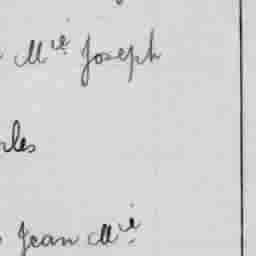 Mie Joseph
rles
Jean Mie